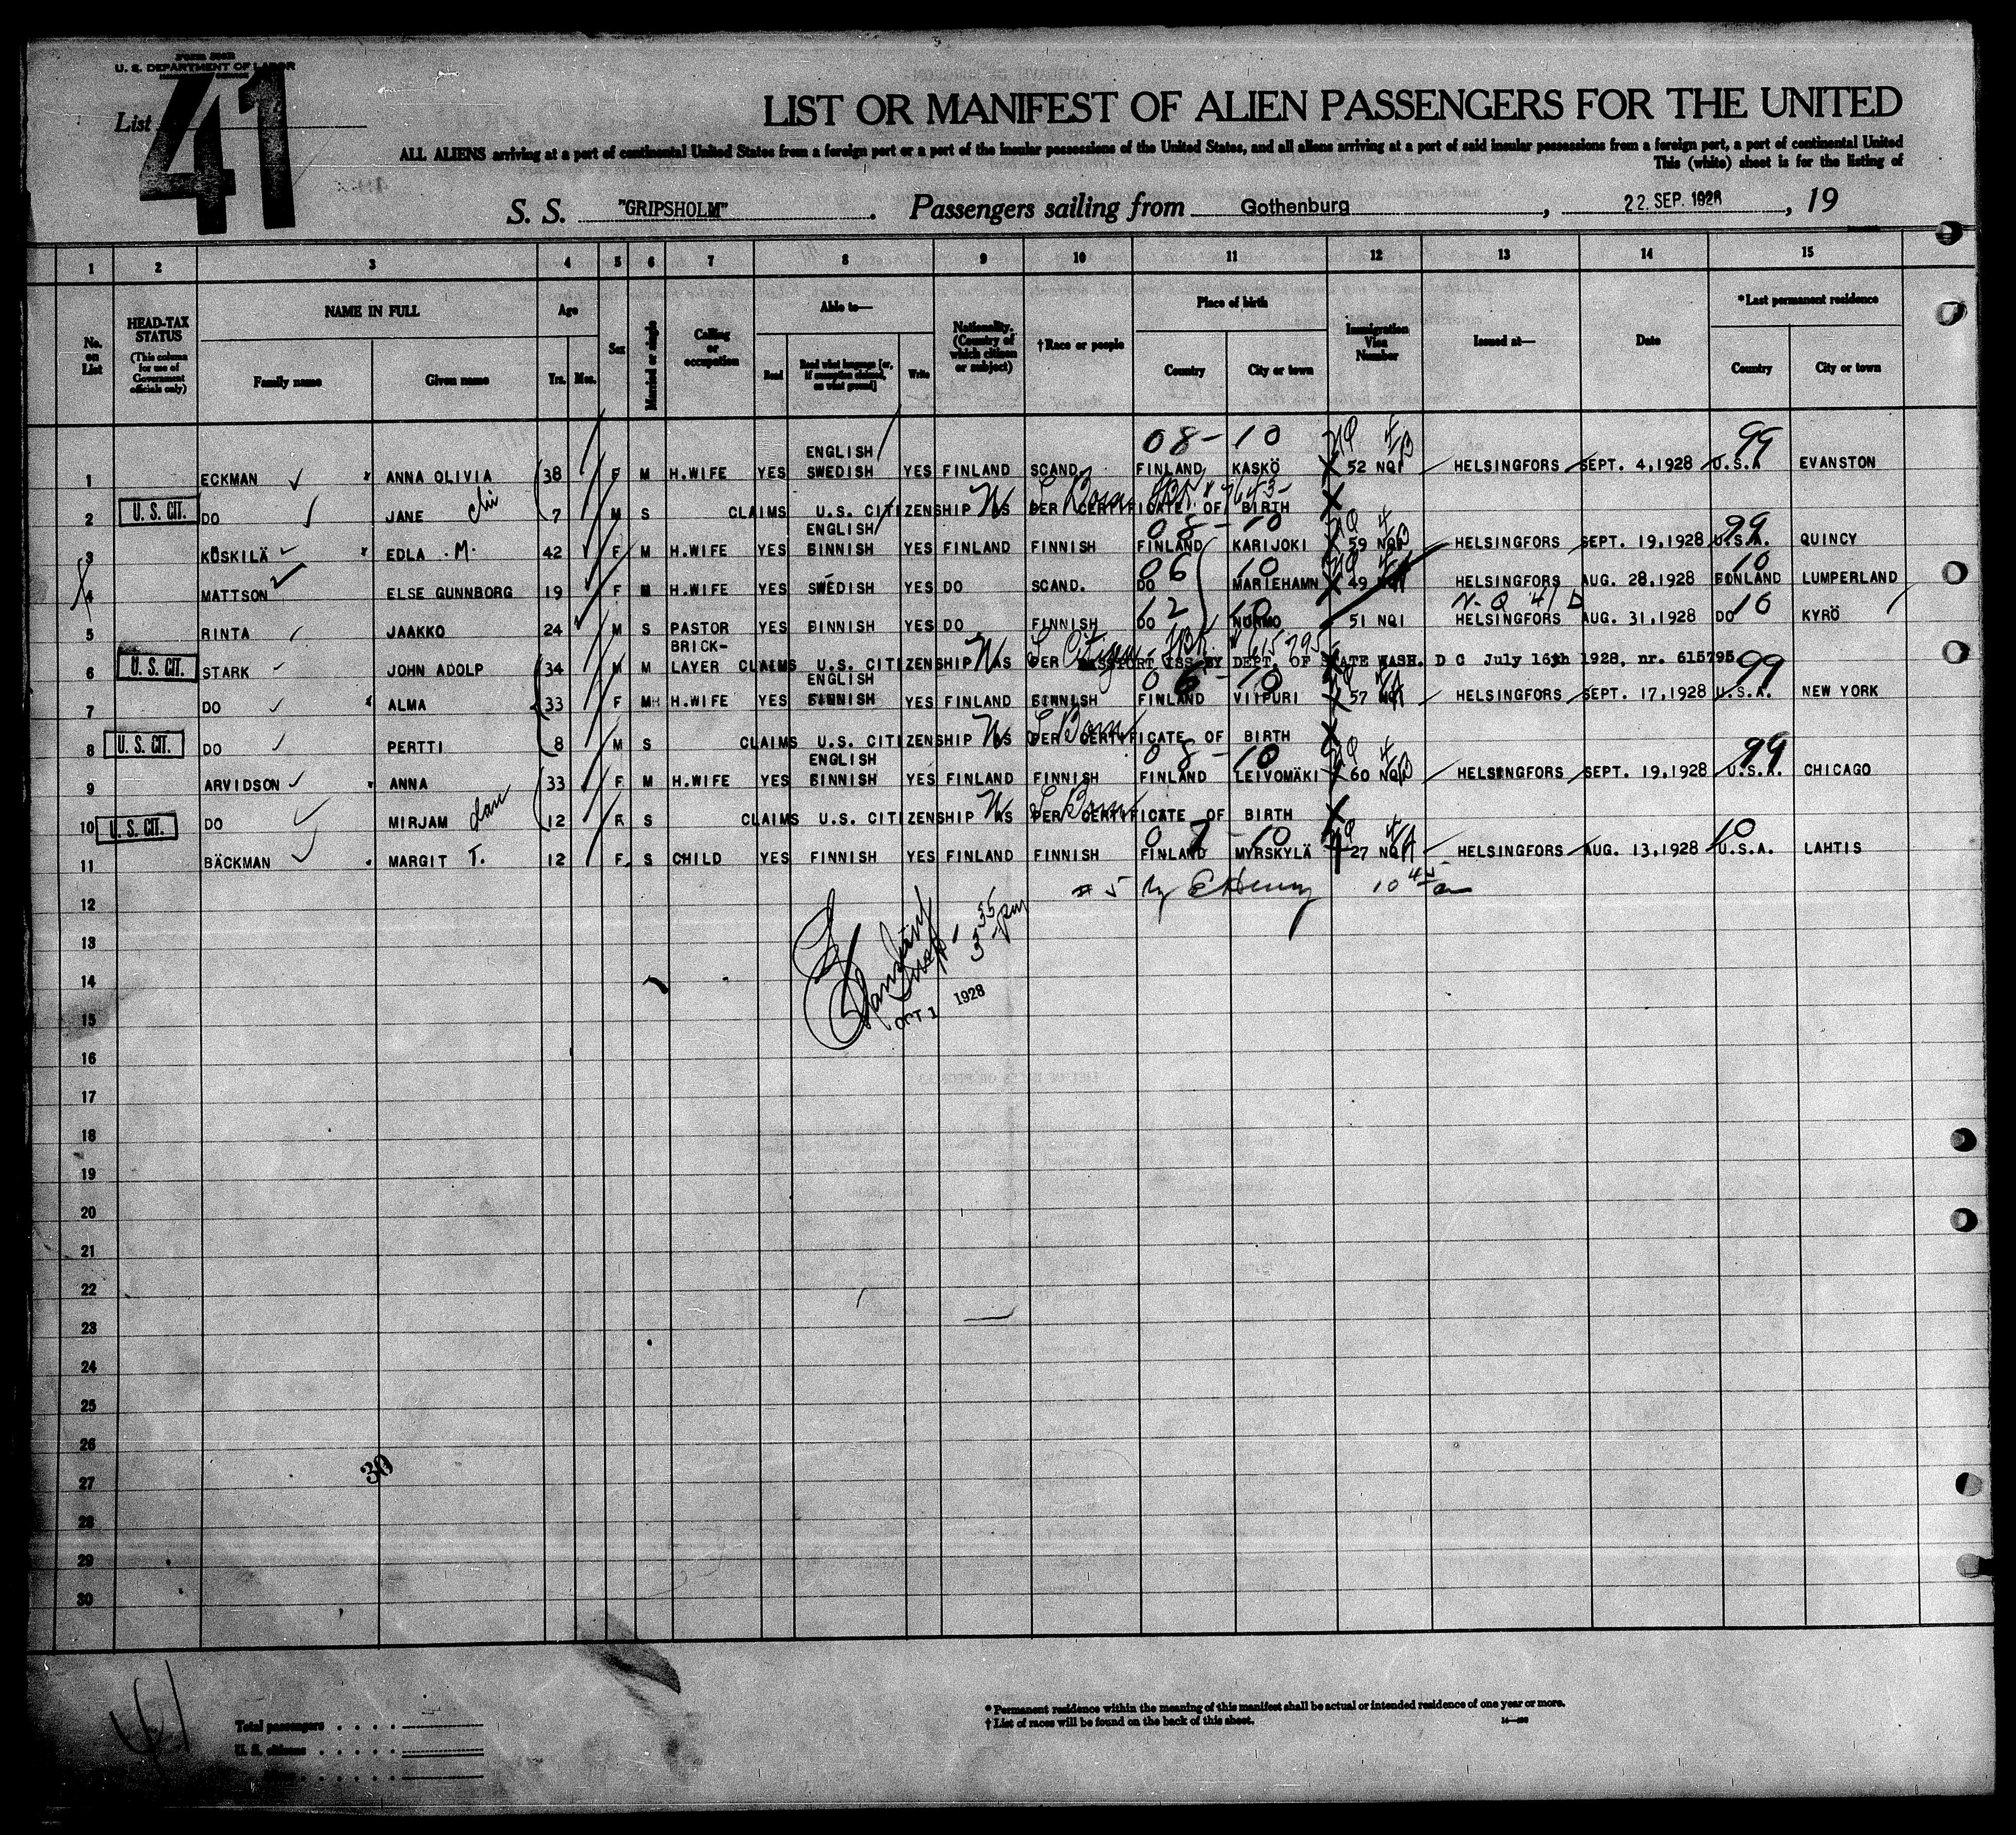 Form 500B
U. S. DEPARTMENT OF LABOR
List 41
LIST OR MANIFEST OF ALIEN PASSENGERS FOR THE UNITED
ALL ALIENS arriving at a port of continental United States from a foreign port or a port of the insular possessions of the United States, and all aliens arriving at a port of said insular possessions from a foreign port, a port of continental United
This (white) sheet is for the listing of
S. S. "GRIPSHOLM". Passengers sailing from Gothenburg, 22. SEP. 1928, 19
1 2 3 4 5 6 7 8 9 10 11 12 13 14 15
No. on List
HEAD-TAX STATUS (This column for use of Government officials only)
NAME IN FULL Family name Given name
Age Yrs. Mos.
Sex
Married or single
Calling or occupation
Able to— Read Read what language [or, if exemption claimed, on what ground] Write
Nationality. (Country of which citizen or subject)
†Race or people
Place of birth Country City or town
Immigration Visa Number
Issued at—
Date
*Last permanent residence Country City or town
08-10 NQ 4B 99
ENGLISH
1 ECKMAN ANNA OLIVIA 38 F M H.WIFE YES SWEDISH YES FINLAND SCAND. FINLAND KASKÖ 52 NQI HELSINGFORS SEPT. 4,1928 U.S.A EVANSTON
2 U. S. CIT. DO JANE 7 M S CLAIMS U.S. CITIZENSHIP AS PER CERTIFICATE OF BIRTH
08-10 99
ENGLISH
3 KÖSKILÄ EDLA .M. 42 F M H.WIFE YES FINNISH YES FINLAND FINNISH FINLAND KARIJOKI 59 HELSINGFORS SEPT. 19,1928 U.S.A. QUINCY
06 10 10
4 MATTSON ELSE GUNNBORG 19 F M H.WIFE YES SWEDISH YES DO SCAND. DO MARIEHAMN 49 HELSINGFORS AUG. 28,1928 FINLAND LUMPERLAND
12 10 10
5 RINTA JAAKKO 24 M S PASTOR YES FINNISH YES DO FINNISH DO NURMO 51 NQI HELSINGFORS AUG. 31,1928 DO KYRÖ
BRICK-
6 U. S. CIT. STARK JOHN ADOLP 34 M M LAYER CLAIMS U.S. CITIZENSHIP AS PER PASSPORT ISS. BY DEPT. OF STATE WASH. D C July 16th 1928, nr. 615795
ENGLISH
06-10 99
7 DO ALMA 33 F M H.WIFE YES FINNISH YES FINLAND FINNISH FINLAND VIIPURI 57 HELSINGFORS SEPT. 17,1928 U.S.A. NEW YORK
8 U. S. CIT. DO PERTTI 8 M S CLAIMS U.S. CITIZENSHIP AS PER CERTIFICATE OF BIRTH
08-10 99
ENGLISH
9 ARVIDSON ANNA 33 F M H.WIFE YES FINNISH YES FINLAND FINNISH FINLAND LEIVOMÄKI 60 HELSINGFORS SEPT. 19,1928 U.S.A. CHICAGO
10 U. S. CIT. DO MIRJAM dau 12 F S CLAIMS U.S. CITIZENSHIP AS PER CERTIFICATE OF BIRTH
07-10 10
11 BÄCKMAN MARGIT T. 12 F S CHILD YES FINNISH YES FINLAND FINNISH FINLAND MYRSKYLÄ 27 HELSINGFORS AUG. 13,1928 U.S.A. LAHTIS
12
13
14
15
OCT 1 1928
16
17
18
19
20
21
22
23
24
25
26
27
30
28
29
30
41
Total passengers
U. S. citizens
* Permanent residence within the meaning of this manifest shall be actual or intended residence of one year or more.
† List of races will be found on the back of this sheet.